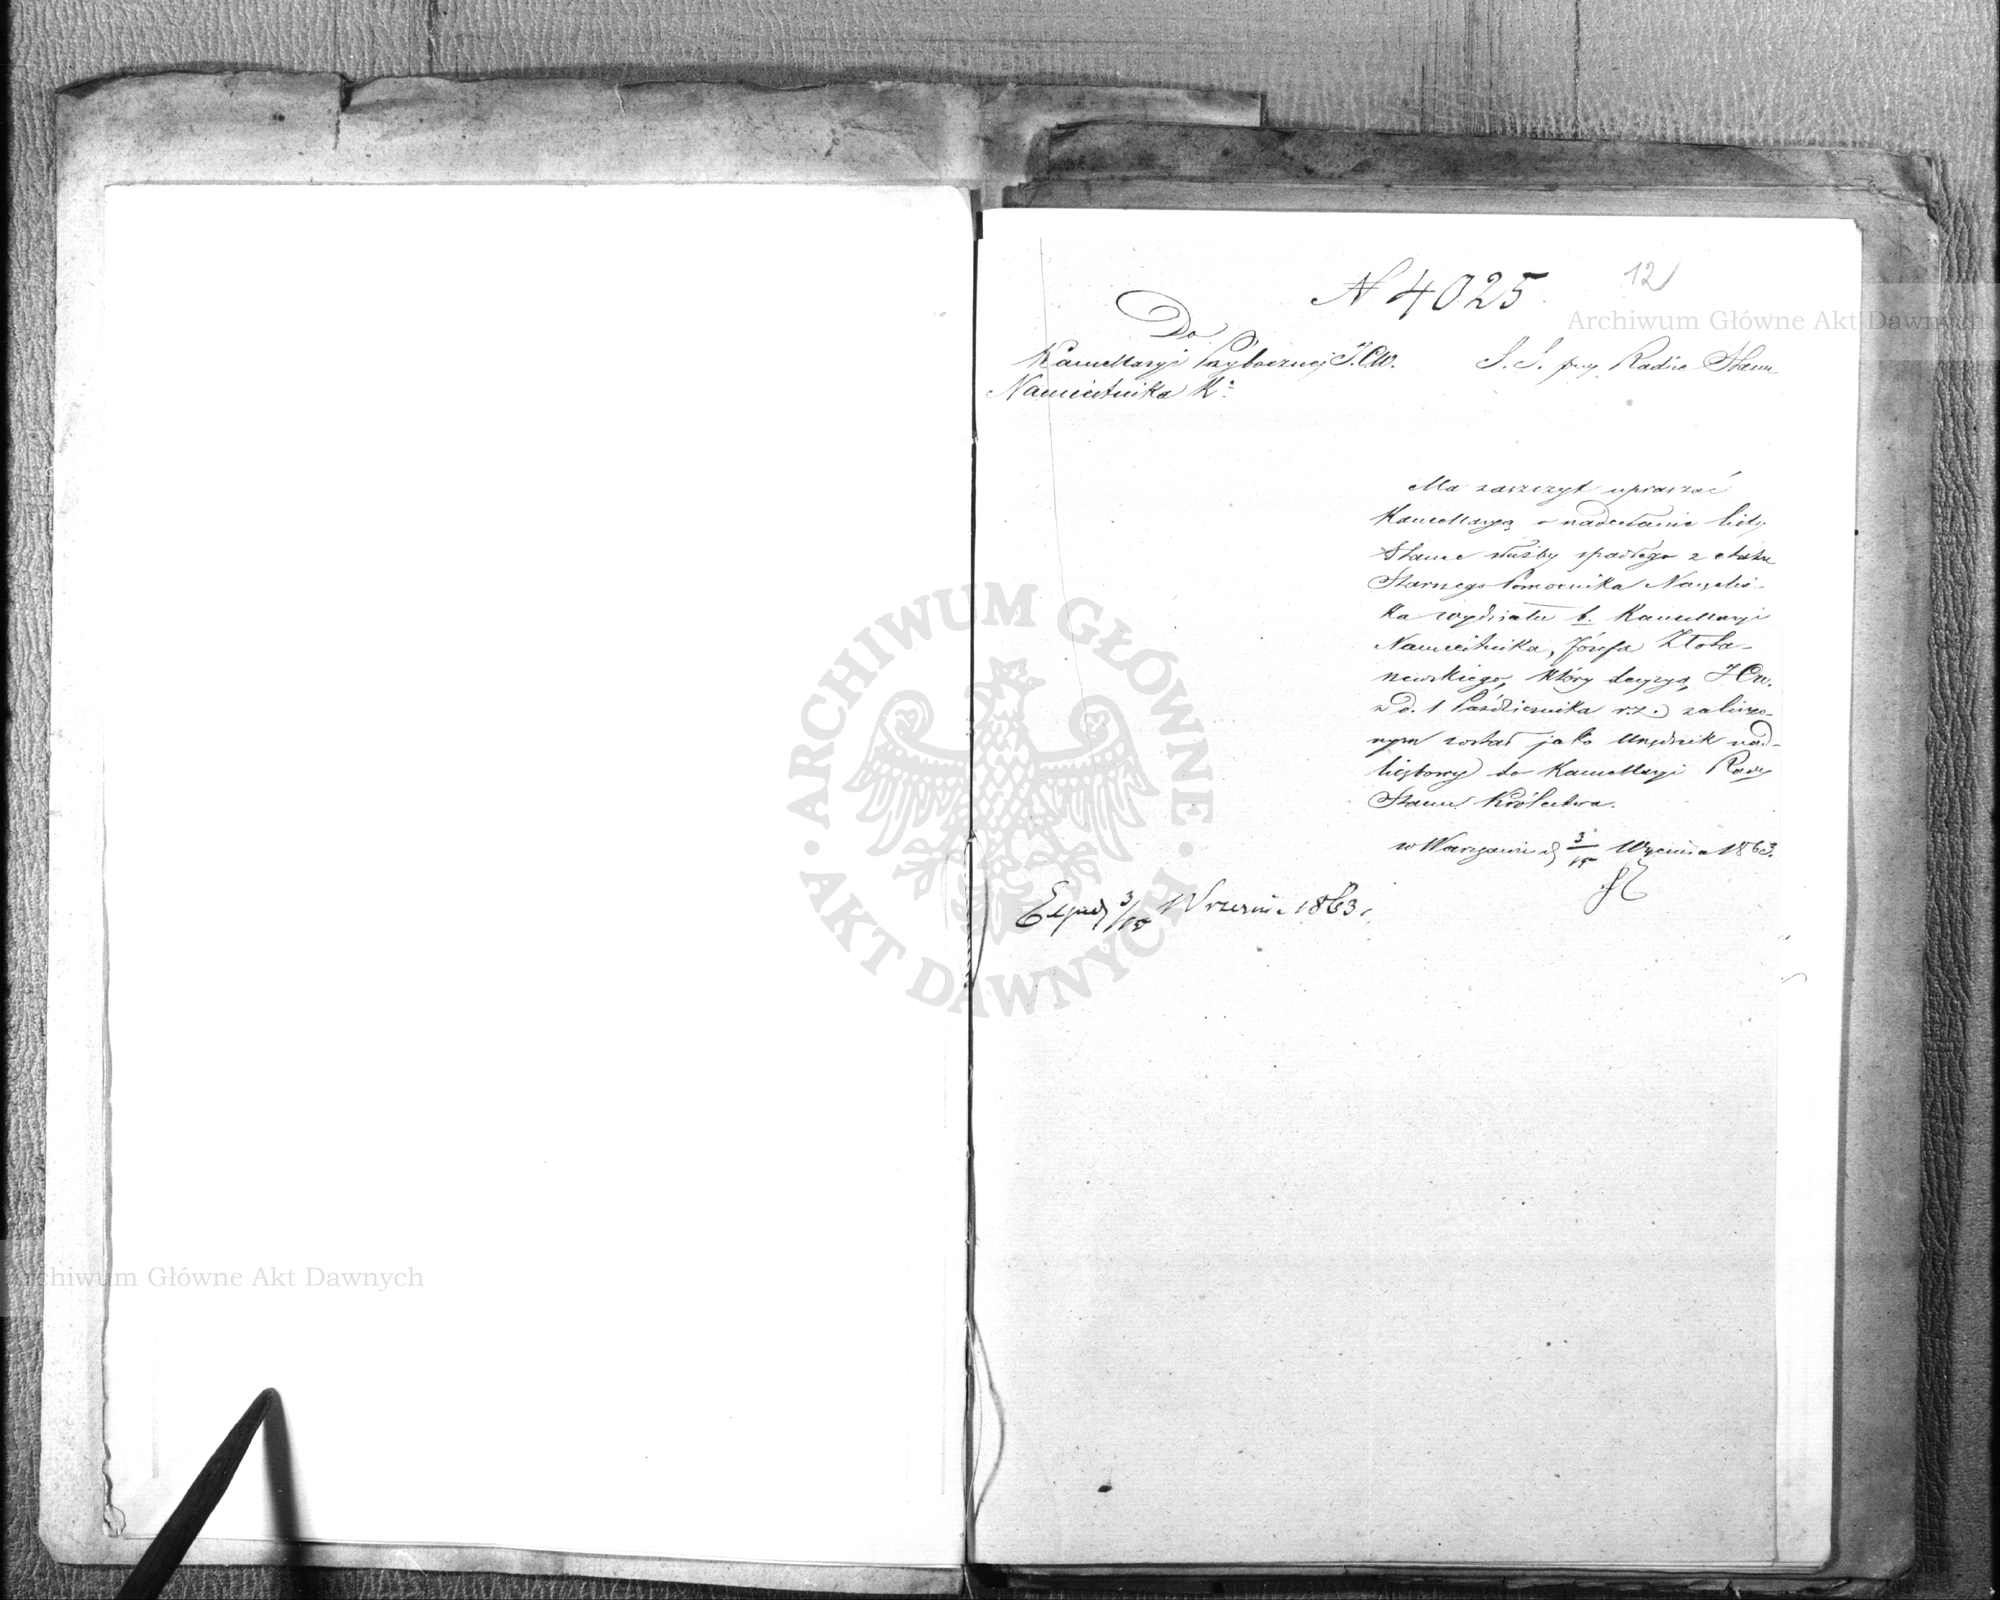 N 4025
12
Do
Kancellaryi Przybocznej J.C.W.
Namiestnika K.
S. S. przy Radzie Stanu
Ma zaszczyt upraszać
Kancellaryą o nadesłanie listy
Stanu służby spadłego z etatu
Starszego Pomocnika Naczelni-
ka wydziału b. Kancellaryi
Namiestnika, Józefa Złota-
newskiego, który decyzyą J.C.W.
z d. 1 Października r.z. zaliczo-
nym został jako urzędnik nad-
liczbowy do Kancellaryi Rady
Stanu Królestwa.
w Warszawie d. 3/15 Września 1863.
Exped. 3/15 Września 1863.
Archiwum Główne Akt Dawnych
ARCHIWUM GŁÓWNE
AKT DAWNYCH
Archiwum Główne Akt Dawnych